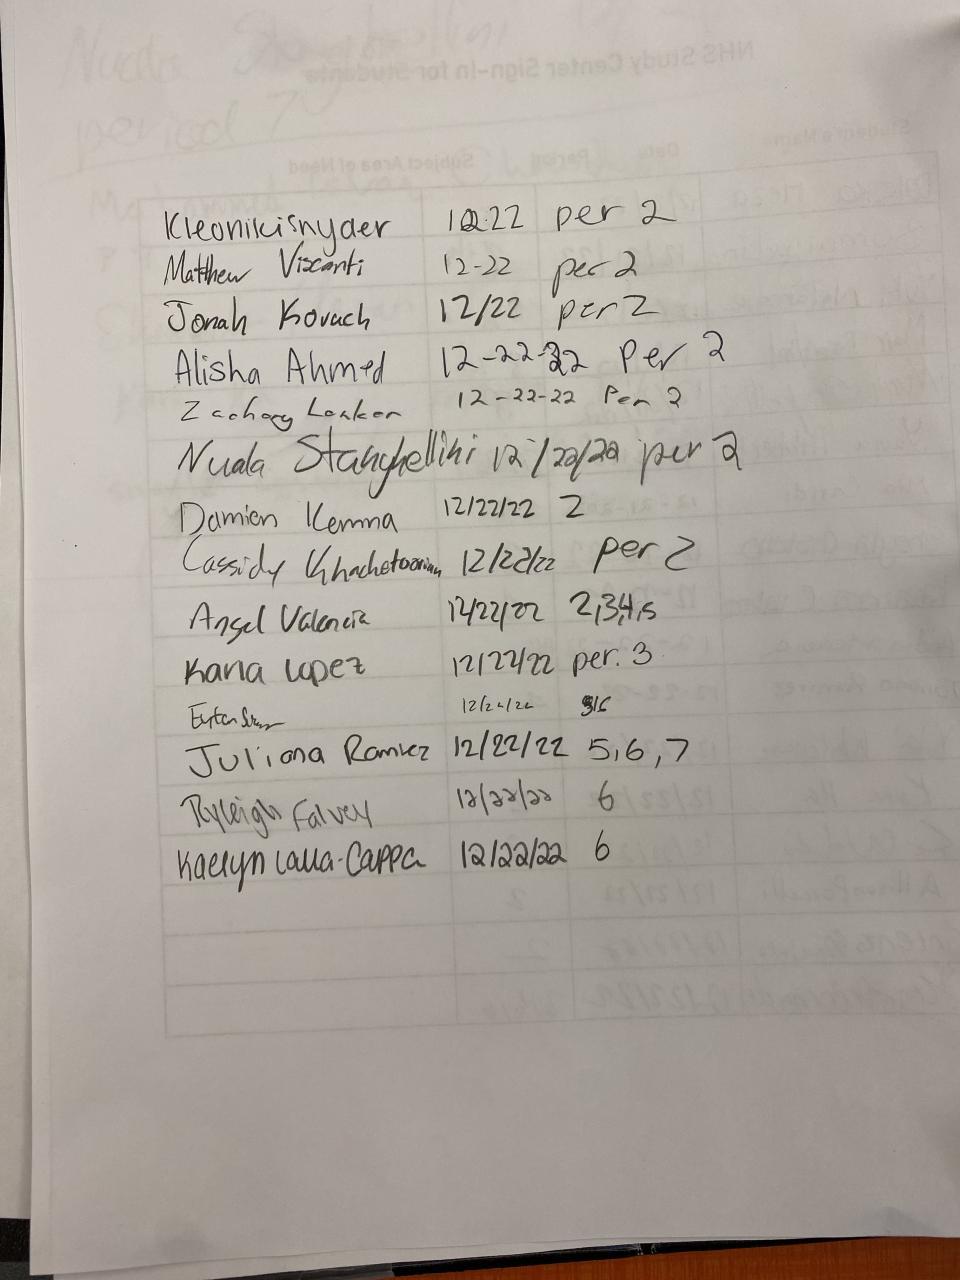 Kleonikisnyder 12.22 per 2
Matthew Visconti 12-22 per 2
Jonah Kovach 12/22 per 2
Alisha Ahmed 12-22-22 Per 2
Zachary 12-22-22 Per 2
Nuala Stanghellini 12/22/22 per 2
Damien Kemma 12/22/22 2
Cassidy Khachetoorian 12/22/22 per 2
Angel Valencia 12/22/22 2,3,4,5
Karla Lopez 12/22/22 per. 3
12/22/22
Juliana Ramirez 12/22/22 5,6,7
Ryleigh Falvey 12/22/22 6
Kaelyn Lalla-Cappa 12/22/22 6